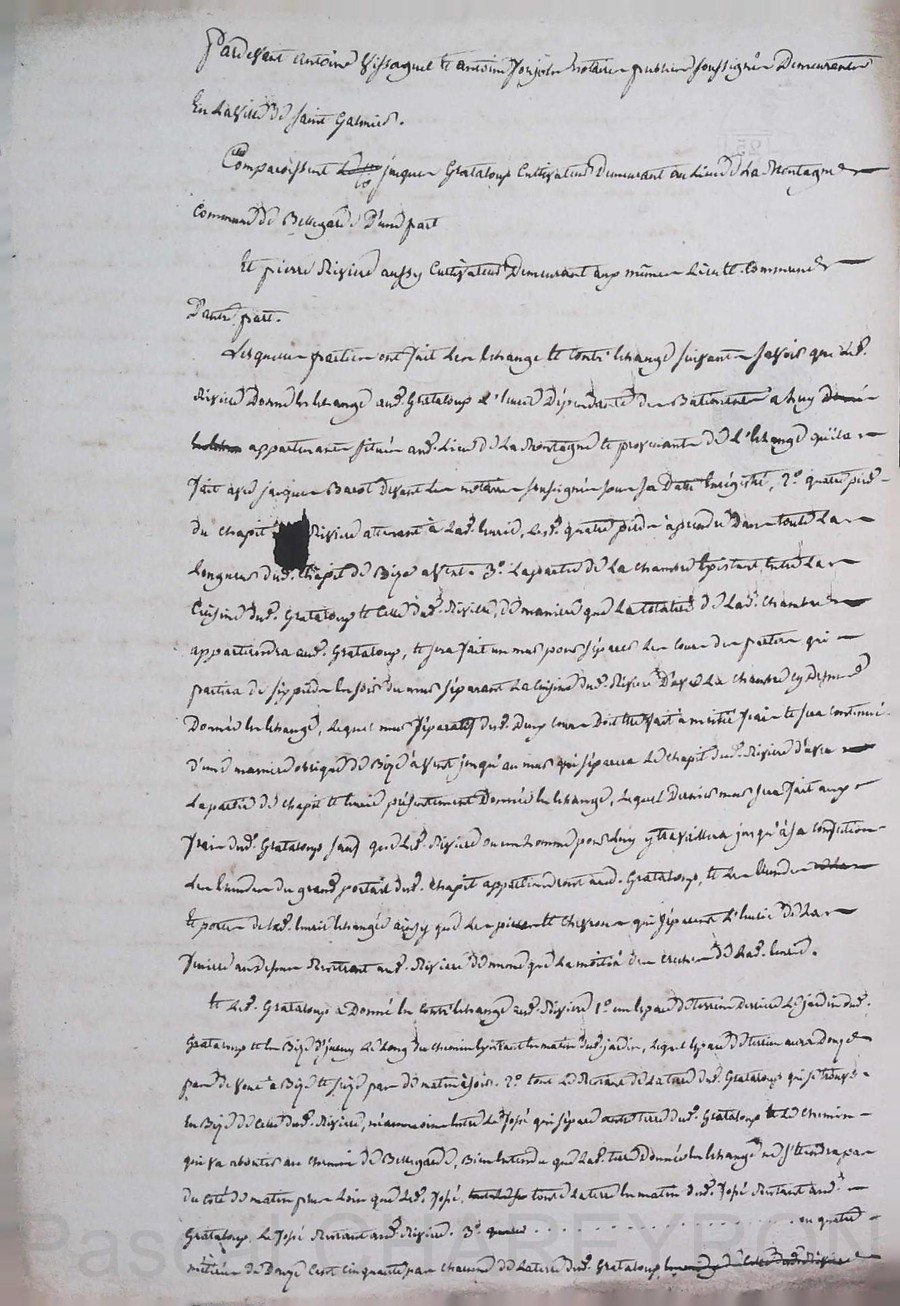 Pardevant Antoine Vissaguel et antoine Jonjols notaires publics soussignés Demeurants
En La Ville de Saint Galmier.
Comparoissent jacques Grataloup Cultivateur Demeurant au Lieu de La Montagne
Commune de Bellegarde D'une part
Et pierre Riviere aussy Cultivateur Demeurant aux mêmes Lieu et Commune
D'autre part.
Lesquelles parties ont fait Les Echange et Contr'Echange suivants savoir que Led.
Riviere Donne En Echange aud. Grataloup L'Ecurie Dépendante des Batiments a Luy
appartenants située aud. Lieu de La Montagne et provenante de L'Echange qu'il a
fait avec jacques Barot devant Les notaires soussignés sous sa Date Enregistré, 2º quatre pieds
du chapit Riviere attenant à Lad. Ecurie, Lesd. quatre pieds à prendre Dans toute La
Longueur dud. Chapit de Bize a Vent. 3º La partie de La chambre Existant Entre La
Cuisine dud. Grataloup et Celle dud. Riviere, de maniere que La totalité de Lad. Chambre
appartiendra aud. Grataloup, et sera fait un mur pour séparer Les Cours des parties qui
partira de six pieds En soir du mur séparant La Cuisine dud. Riviere D'avec La Chambre cy Dessus
Donnée En Echange, Lequel mur séparatif desd. Deux Cours Doit Etre fait à moitié frais et sera continué
d'une maniere oblique de Bize à Vent jusqu'au mur qui séparera Le Chapit dud. Riviere d'avec
La partie de Chapit et Ecurie présentement Donnée En Echange, Lequel Dernier mur sera fait aux
frais dud. Grataloup sauf que Led. Riviere ou un homme pour Luy y travaillera jusqu'à sa Confection
Les Evandes du grand portail dud. Chapit appartiendront aud. Grataloup, et Les
Et portes de Lad. Ecurie Echangée ainsy que Les pieces et Chevrons qui séparent L'Ecurie de La
feniere au dessus Resteront aud. Riviere de meme que La moitié des Creches de Lad. Ecurie.
Et Led. Grataloup a Donné En Contr'Echange aud. Riviere 1º un Espace de terrein Derriere Le jardin dud.
Grataloup et En Bize D'iceluy Le Long du Chemin Existant En matin dud. jardin, Lequel Espace de terrein aura Douze
pas de Vent à Bize et seize pas de matin à soir. 2º tout Le Restant de La terre dud. Grataloup qui se trouve
En Bize de Celle dud. Riviere, néanmoins Entre Le fossé qui sépare terre dud. Grataloup et Le Chemin
qui Va aboutir au Chemin de Bellegarde, Bien Entendu que Lad. terre Donnée En Echange ne s'Etendra pas
du Coté de matin plus Loin que Led. fossé, toute La terre En matin dud. fossé Restant aud.
Grataloup, Le fossé Restant aud. Riviere. 3º . . . . . . . . . . . . ou quatre
métiers de Douze Cent Cinquante pas Chacune de La terre dud. Grataloup
Pascal CHAREYRON